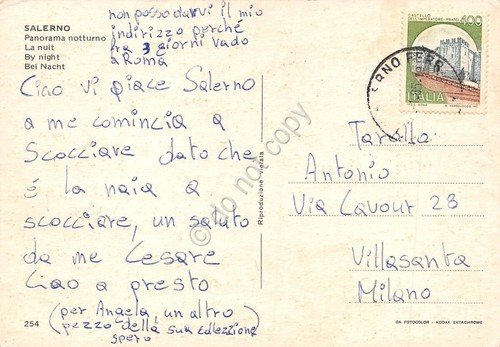 SALERNO
Panorama notturno
La nuit
By night
Bei Nacht
non posso darvi il mio
indirizzo perché
fra 3 giorni vado
a Roma
Ciao Vi piace Salerno
a me comincia a
Scocciare dato che
é la naia a
scocciare, un saluto
da me Cesare
Ciao a presto
(per Angela, un altro
pezzo della sua collezione)
spero
254
Riproduzione vietata
CASTELLO
DELL'IMPERATORE - PRATO
400
ITALIA
ERNO FERR
Tarallo
Antonio
Via Cavour 28
Villasanta
Milano
DA FOTOCOLOR - KODAK EKTACHROME
do not copy